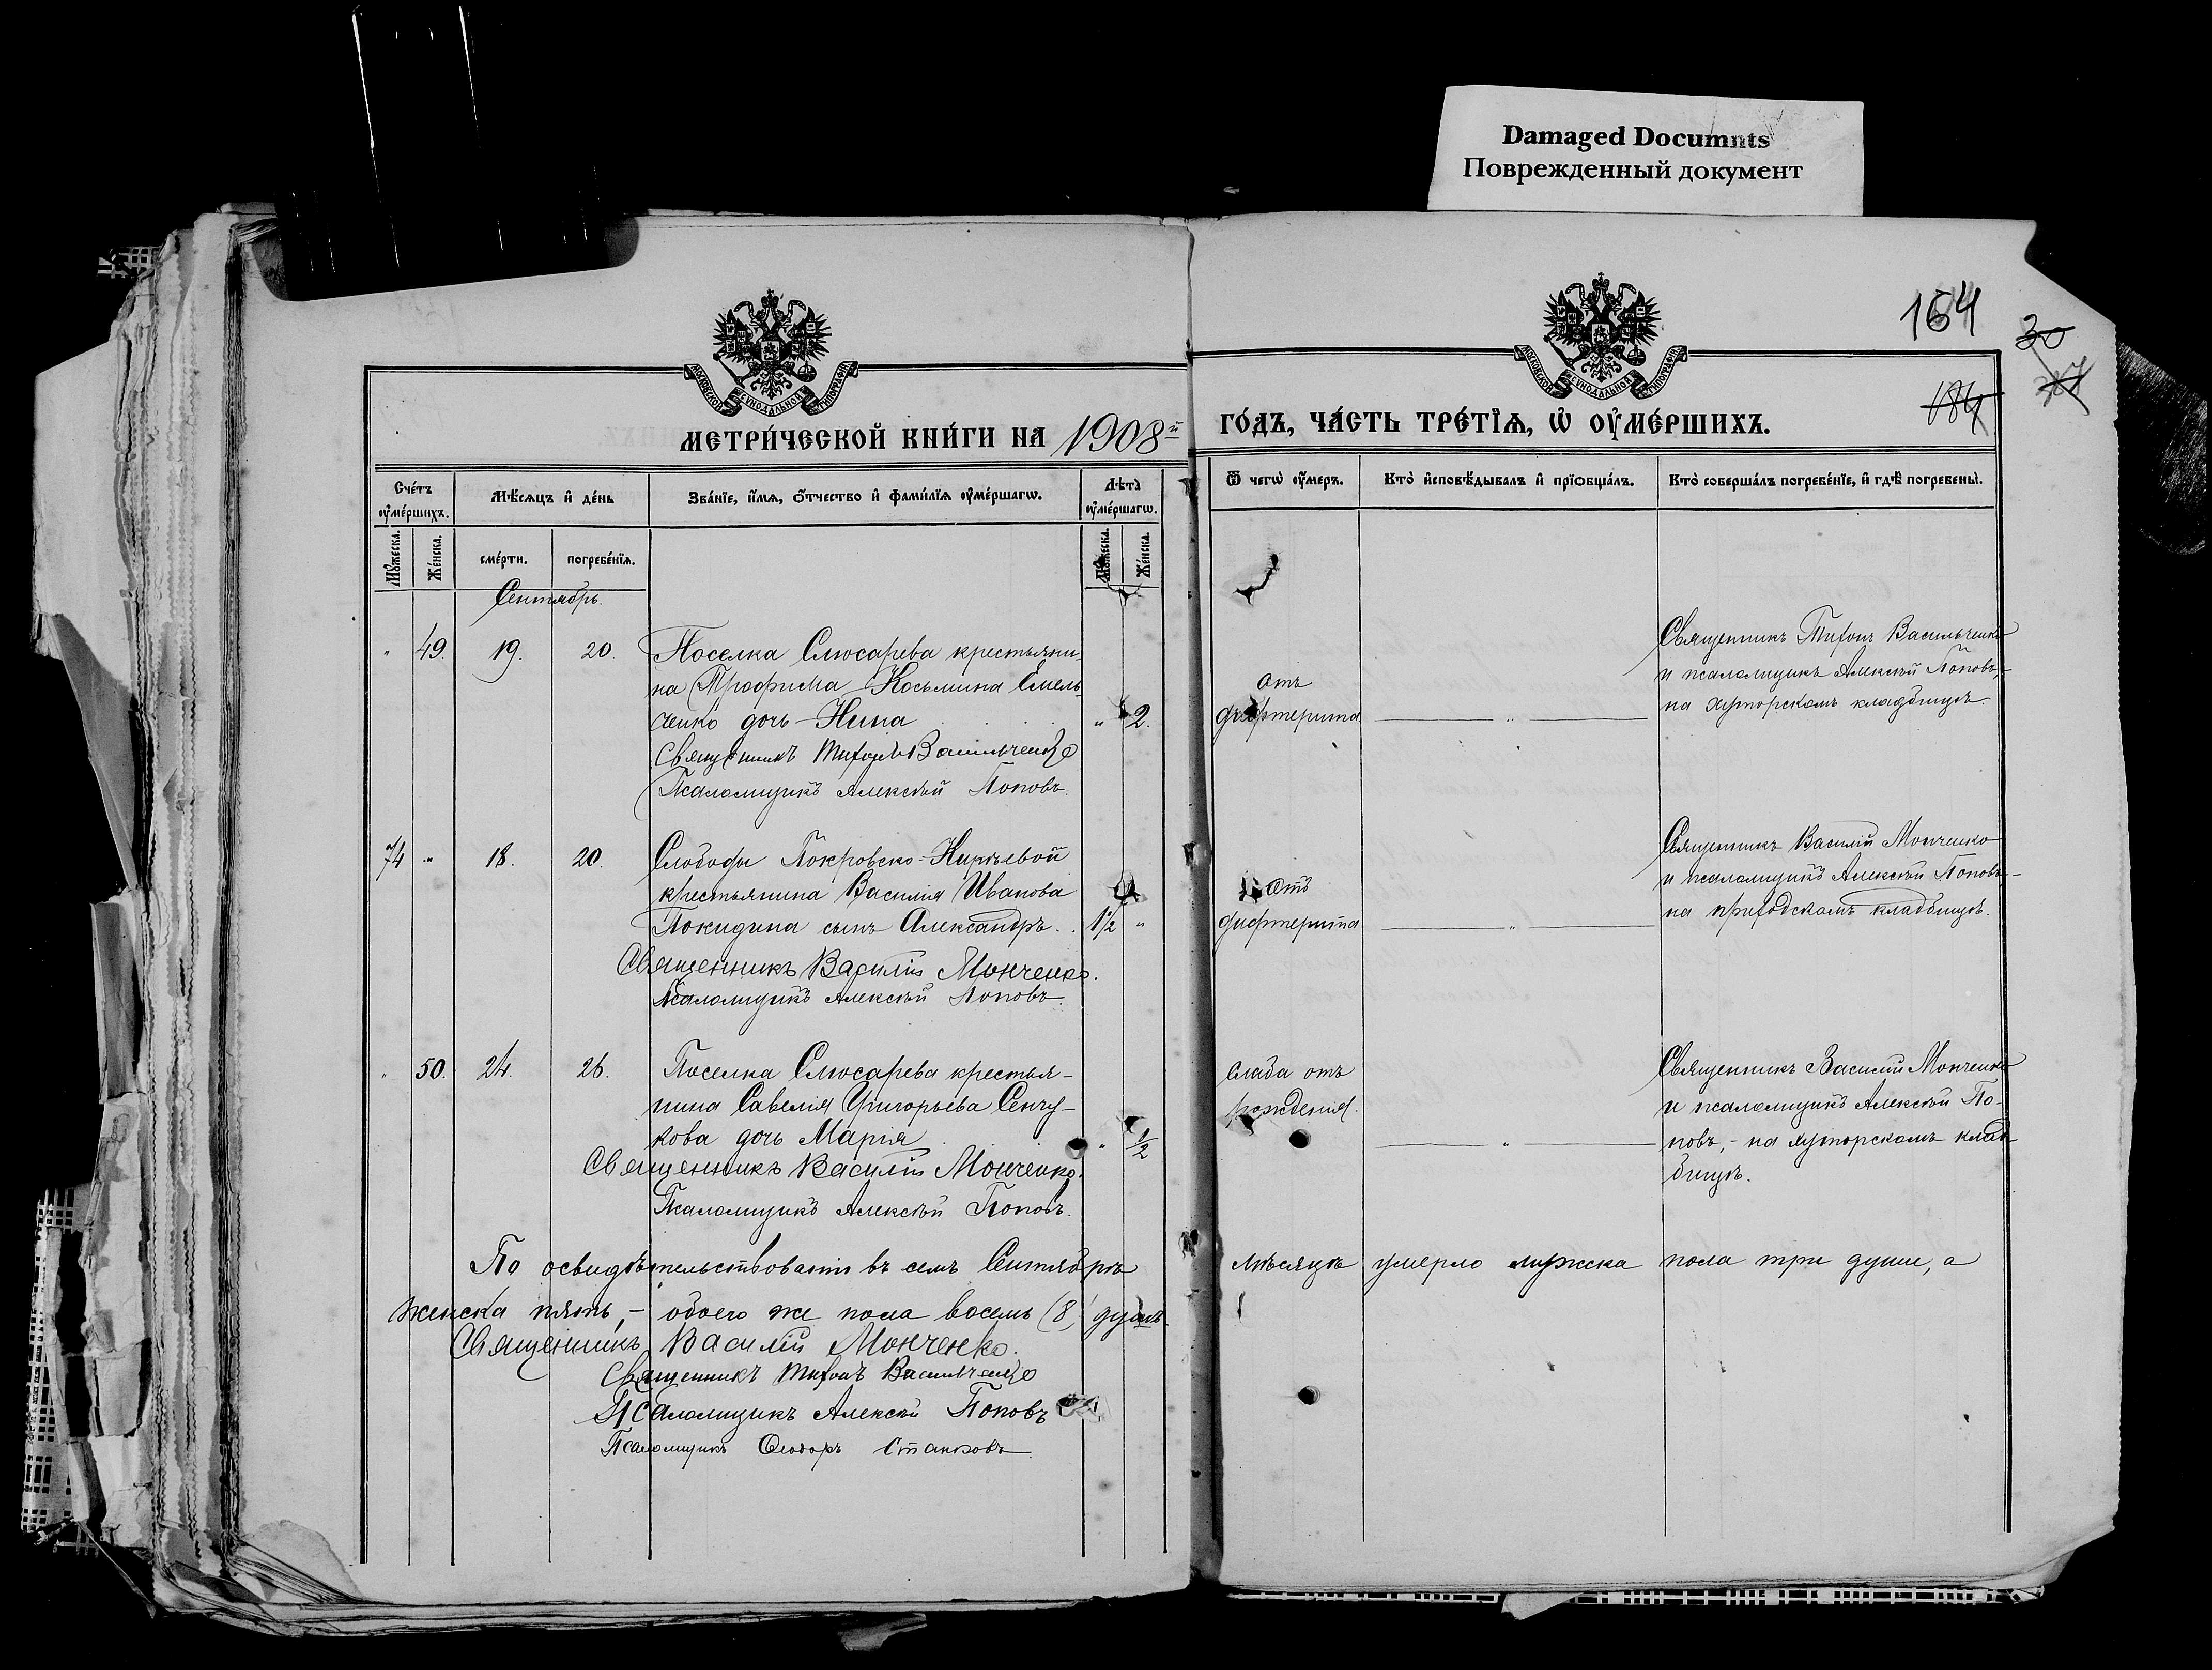 Damaged Documnts
Поврежденный документ
164
30
184
МОСКОВСКОЙ СѴНОДАЛЬНОЙ ТИПОГРАФІИ
МОСКОВСКОЙ СѴНОДАЛЬНОЙ ТИПОГРАФІИ
МЕТРИ́ЧЕСКОЙ КНИ́ГИ НА 1908й
ГО́ДЪ, ЧА́СТЬ ТРЕ́ТІѦ, Ѡ҆ ОУ҆МЕ́РШИХЪ.
Сче́тъ оу҆ме́ршихъ.
Мѣ́сѧцъ и҆ де́нь
Зва́нїе, и҆́мѧ, ѻ҆́тчество и҆ фами́лїѧ оу҆ме́ршагѡ.
Лѣта̀ оу҆ме́ршагѡ.
Ѿ чегѡ̀ оу҆́меръ.
Кто̀ и҆сповѣ́дывалъ и҆ прїѡбща́лъ.
Кто̀ соверша́лъ погребе́нїе, и҆ гдѣ̀ погребены̀.
Мꙋ́жеска.
Же́нска.
сме́рти.
погребе́нїѧ.
Мꙋ́жеска.
Же́нска.
Сентябрь.
" 49. 19. 20. Поселка Слюсарева крестьяни-
на Трофима Косьмина Емель
ченко дочь Нина " 2.
Священникъ Тихонъ Васильченко
Псаломщикъ Алексѣй Поповъ.
отъ
дифтерита
"
Священникъ Тихонъ Васильченко
и псаломщикъ Алексѣй Поповъ,-
на хуторскомъ кладбищѣ.
74 " 18. 20. Слободы Покровско-Киреевой
крестьянина Василія Иванова
Покидина сынъ Александръ. 1½ "
Священникъ Василій Монченко.
Псаломщикъ Алексѣй Поповъ.
отъ
дифтерита
"
Священникъ Василій Монченко
и псаломщикъ Алексѣй Поповъ-
на приходскомъ кладбищѣ.
" 50. 24. 26. Поселка Слюсарева крестья-
нина Савелія Григорьева Сенчу-
кова дочь Марія " ½
Священникъ Василій Монченко.
Псаломщикъ Алексѣй Поповъ.
слаба отъ
рожденія.
"
Священникъ Василій Монченко
и псаломщикъ Алексѣй По-
повъ,- на хуторскомъ клад-
бищѣ.
По освидѣтельствованіи въ семъ Сентябрѣ мѣсяцѣ умерло мужска пола три души, а
женска пять,- обоего же пола восемь (8) душъ.
Священникъ Василій Монченко.
Священникъ Тихонъ Васильченко
Псаломщикъ Алексѣй Поповъ
Псаломщикъ Ѳеодоръ Станковъ.